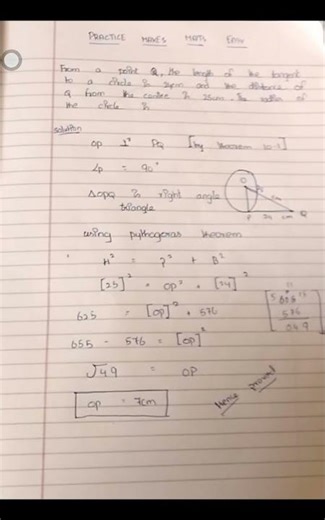 PRACTICE MAKES MATHS Easy
From a point Q, the length of the tangent
to a circle is 24cm and the distance of
Q from the center is 25cm, the radius of
the circle is
Solution
OP ⊥ PQ [by theorem 10.1]
∠p = 90°
△OPQ is right angle
triangle
O
cm
P 24 cm Q
using pythagoras theorem
H² = P² + B²
[25]² = OP² + [24]²
625 = [OP]² + 576
655 - 576 = [OP]²
576
049
√49 = OP
OP = 7cm
Hence proved